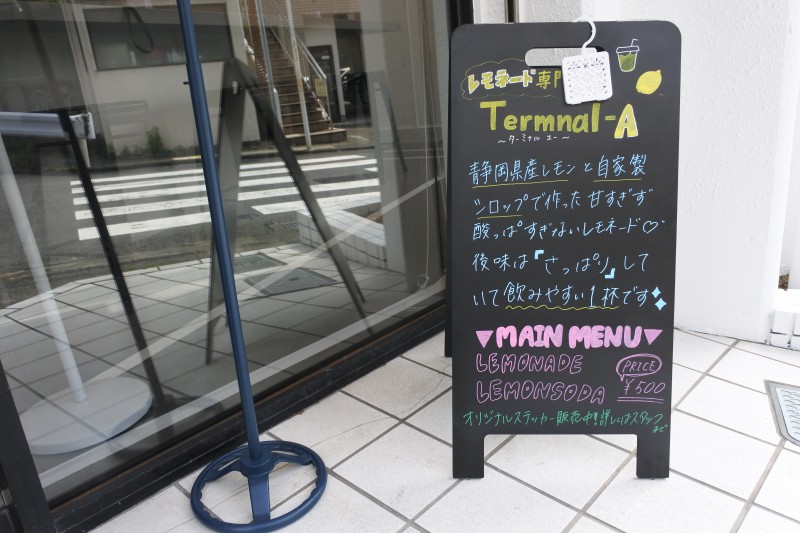 レモネード専門
Termnal-A
～ターミナル エー～
静岡県産レモンと自家製
シロップで作った甘すぎず
酸っぱすぎないレモネード♡
後味は『さっぱり』して
いて飲みやすい1杯です
▼MAIN MENU▼
LEMONADE
LEMONSODA
PRICE
¥500
オリジナルステッカー販売中!!詳しくはスタッフ
まで